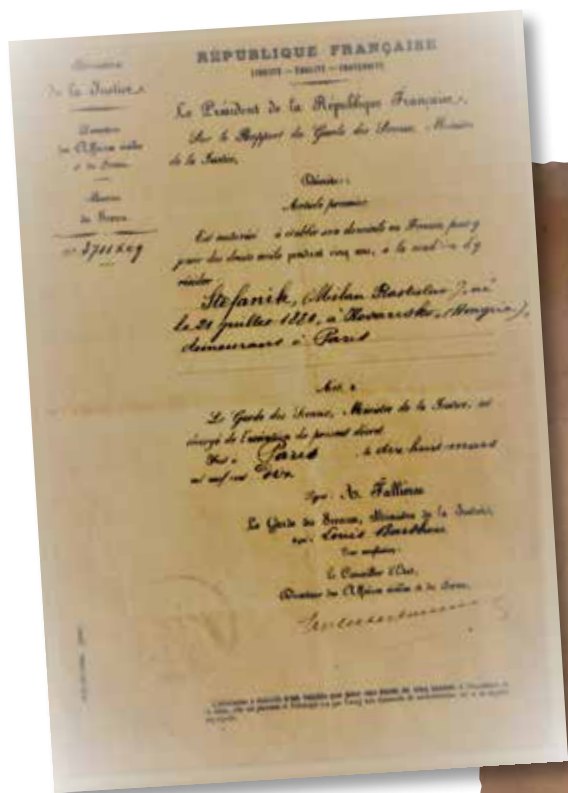 Ministère
de la Justice
Direction
des Affaires civiles
et du Sceau
Bureau
du Sceau
RÉPUBLIQUE FRANÇAISE
LIBERTÉ – ÉGALITÉ – FRATERNITÉ
Le Président de la République Française,
Sur le Rapport du Garde des Sceaux, Ministre
de la Justice,
Décrète :
Article premier
Est autorisé à établir son domicile en France, pour y
jouir des droits civils pendant cinq ans, à la condition d'y
résider
Stefanik, (Milan Rastislav), né
le 21 juillet 1880, à Kosarisko, (Hongrie),
demeurant à Paris
Art. 2
Le Garde des Sceaux, Ministre de la Justice, est
chargé de l'exécution du présent décret
Fait à Paris le dix huit mars
mil neuf cent dix
Signé : A. Fallières
Le Garde des Sceaux, Ministre de la Justice,
Signé : Louis Barthou
Pour ampliation :
Le Conseiller d'Etat,
Directeur des Affaires civiles et du Sceau,